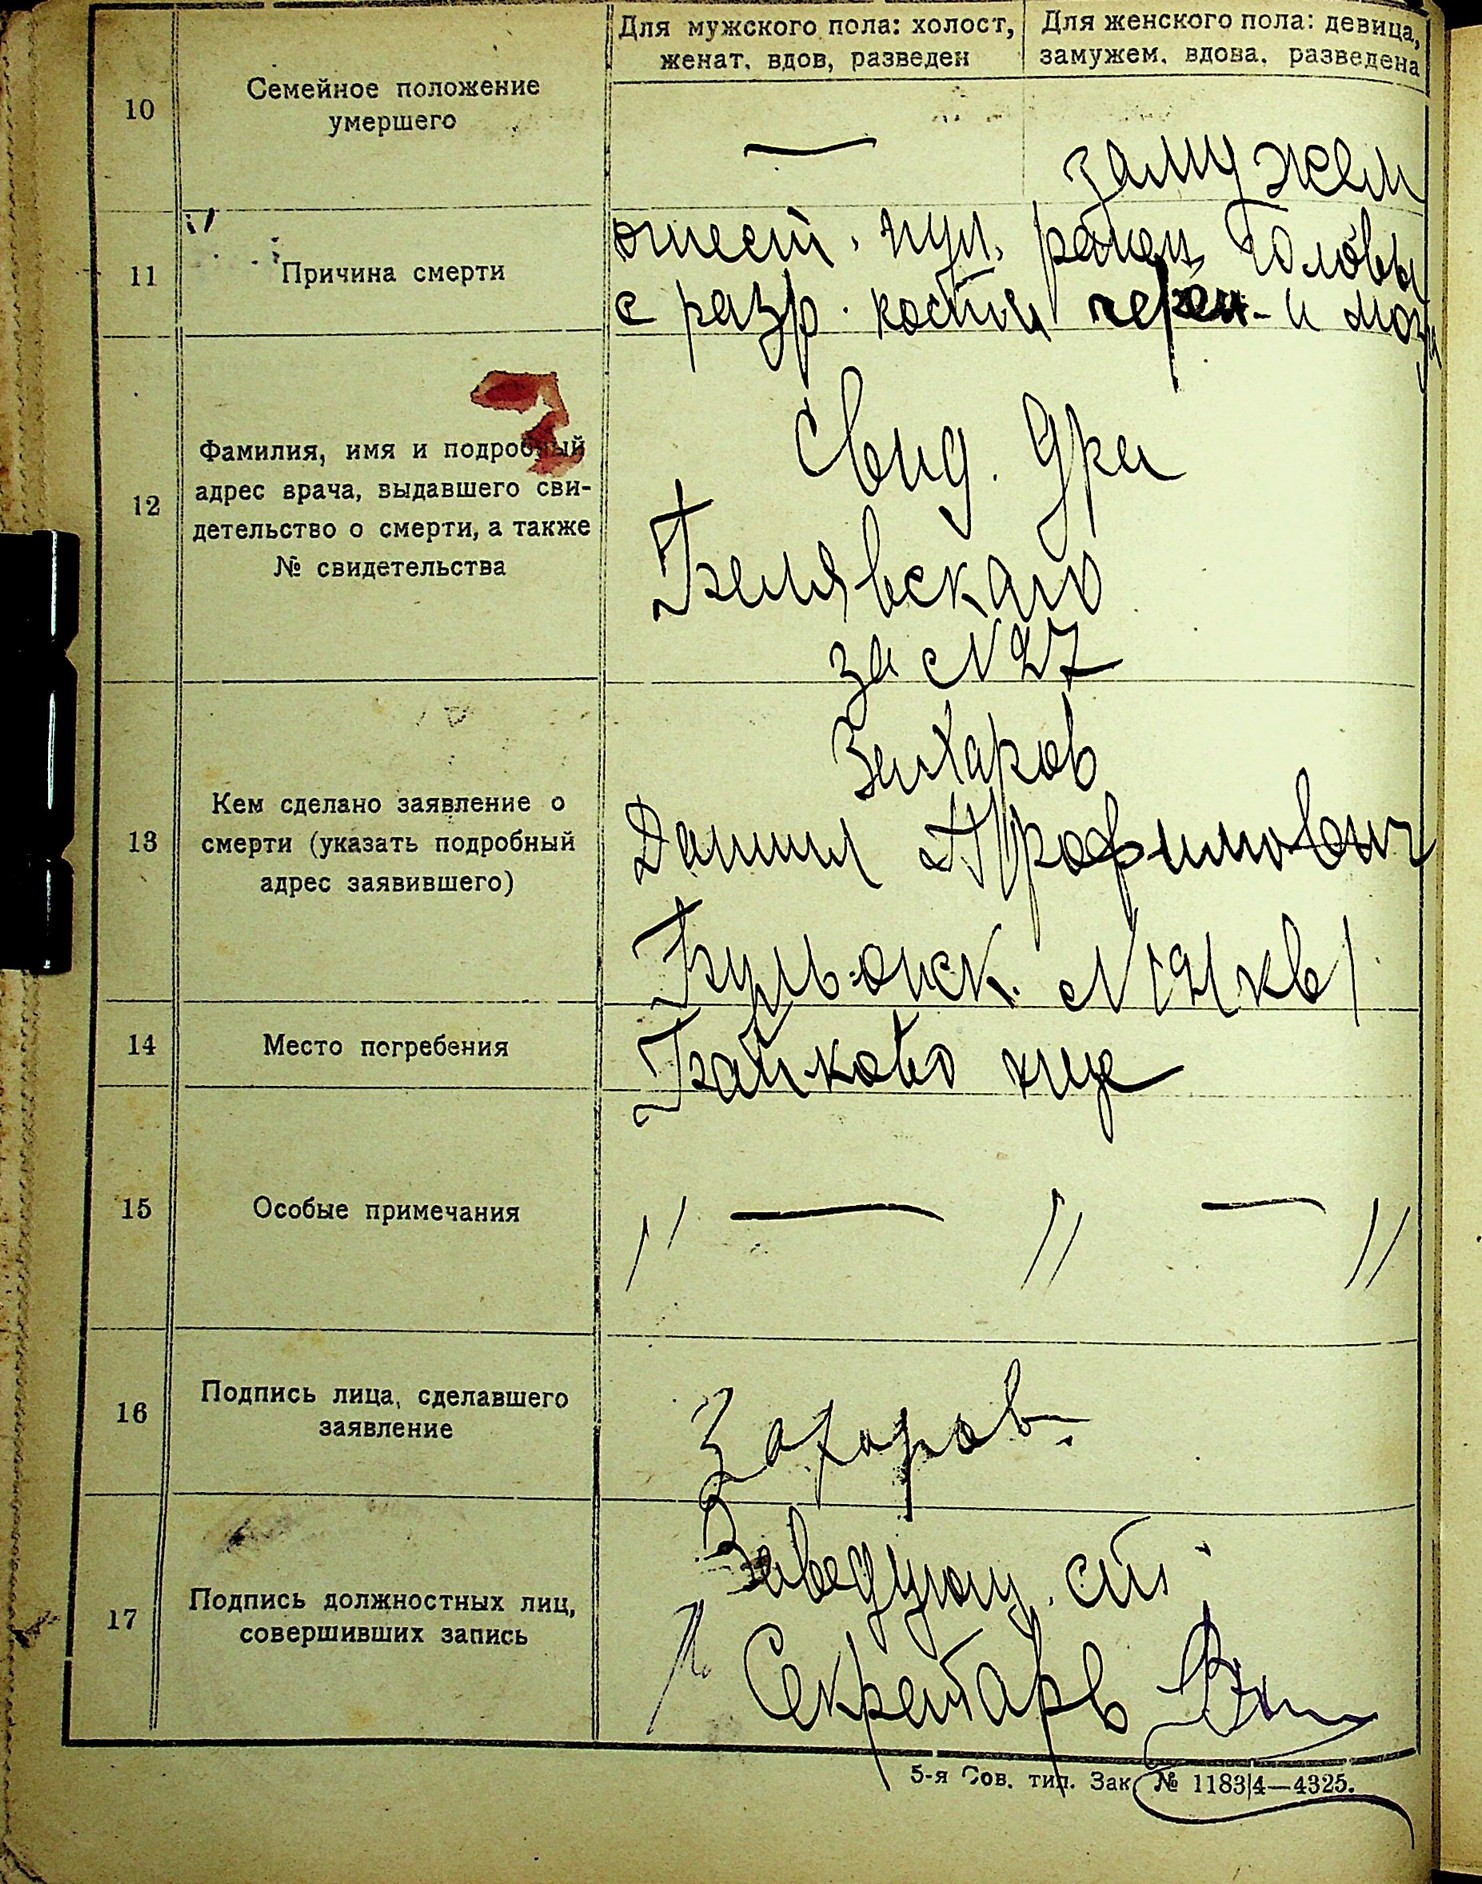 Для мужского пола: холост,
женат, вдов, разведен
Для женского пола: девица,
замужем, вдова, разведена
10
Семейное положение
умершего
—
замужем
11
Причина смерти
огнест. пул. ранен. головы
с разр. костей череп. и мозг
12
Фамилия, имя и подробный
адрес врача, выдавшего сви-
детельство о смерти, а также
№ свидетельства
Свид. Дра
Белявского
за №27
13
Кем сделано заявление о
смерти (указать подробный
адрес заявившего)
Захаров
Даниил Трофимович
кв 1
14
Место погребения
Байково кще
15
Особые примечания
" — " — "
16
Подпись лица, сделавшего
заявление
Захаров
17
Подпись должностных лиц,
совершивших запись
Заведующ. ст.
Секретарь
5-я Сов. тип. Зак. № 1183|4—4325.